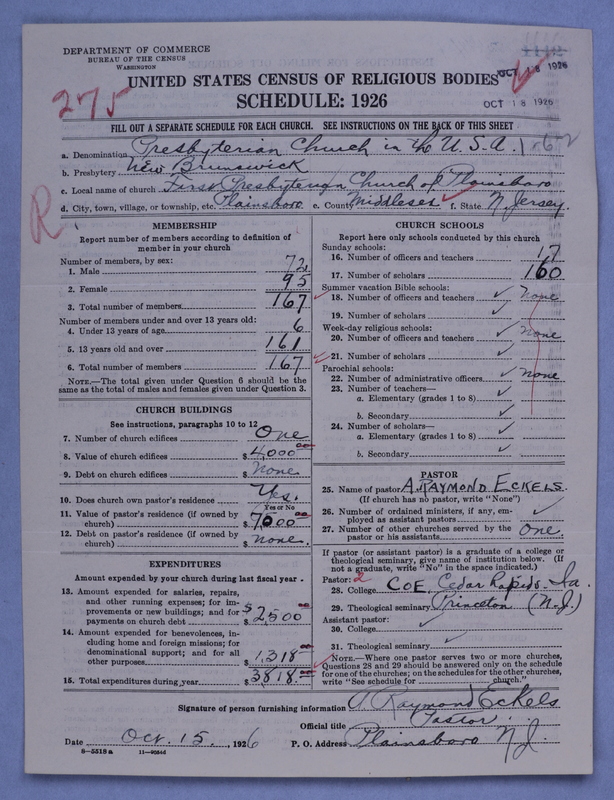 DEPARTMENT OF COMMERCE
BUREAU OF THE CENSUS
WASHINGTON
1112
OCT 18 1926
UNITED STATES CENSUS OF RELIGIOUS BODIES
275
SCHEDULE: 1926
OCT 18 1926
FILL OUT A SEPARATE SCHEDULE FOR EACH CHURCH. SEE INSTRUCTIONS ON THE BACK OF THIS SHEET
a. Denomination Presbyterian Church in the U.S.A. 1-6-2
b. Presbytery New Brunswick
c. Local name of church First Presbyterian Church of Plainsboro
R
d. City, town, village, or township, etc. Plainsboro e. County Middlesex f. State N Jersey.
MEMBERSHIP
Report number of members according to definition of member in your church
Number of members, by sex:
1. Male 72
2. Female 95
3. Total number of members 167
Number of members under and over 13 years old:
4. Under 13 years of age 6
5. 13 years old and over 161
6. Total number of members 167
NOTE.—The total given under Question 6 should be the same as the total of males and females given under Question 3.
CHURCH BUILDINGS
See instructions, paragraphs 10 to 12
7. Number of church edifices One
8. Value of church edifices $4,000.00
9. Debt on church edifices $ None
10. Does church own pastor's residence Yes.
Yes or No
11. Value of pastor's residence (if owned by church) $7500.00
12. Debt on pastor's residence (if owned by church) $ None.
EXPENDITURES
Amount expended by your church during last fiscal year.
13. Amount expended for salaries, repairs, and other running expenses; for improvements or new buildings; and for payments on church debt $2500.00
14. Amount expended for benevolences, including home and foreign missions; for denominational support; and for all other purposes 1318.00
15. Total expenditures during year $3818.00
CHURCH SCHOOLS
Report here only schools conducted by this church
Sunday schools:
16. Number of officers and teachers 17
17. Number of scholars 160
Summer vacation Bible schools:
18. Number of officers and teachers None
19. Number of scholars
Week-day religious schools:
20. Number of officers and teachers None
21. Number of scholars
Parochial schools:
22. Number of administrative officers None
23. Number of teachers—
a. Elementary (grades 1 to 8)
b. Secondary
24. Number of scholars—
a. Elementary (grades 1 to 8)
b. Secondary
PASTOR
25. Name of pastor A. RAYMOND ECKELS.
(If church has no pastor, write "None")
26. Number of ordained ministers, if any, employed as assistant pastors
27. Number of other churches served by the pastor or his assistants One.
If pastor (or assistant pastor) is a graduate of a college or theological seminary, give name of institution below. (If not a graduate, write "No" in the space indicated.)
Pastor: 2
28. College COE, Cedar Rapids, Ia.
29. Theological seminary Princeton (N.J.)
Assistant pastor:
30. College
31. Theological seminary
NOTE.—Where one pastor serves two or more churches, Questions 28 and 29 should be answered only on the schedule for one of the churches; on the schedules for the other churches, write "See schedule for church."
Signature of person furnishing information A. Raymond Eckels
Official title Pastor.
Date Oct. 15, 1926 P. O. Address Plainsboro N.J.
8—5518a 11—90546